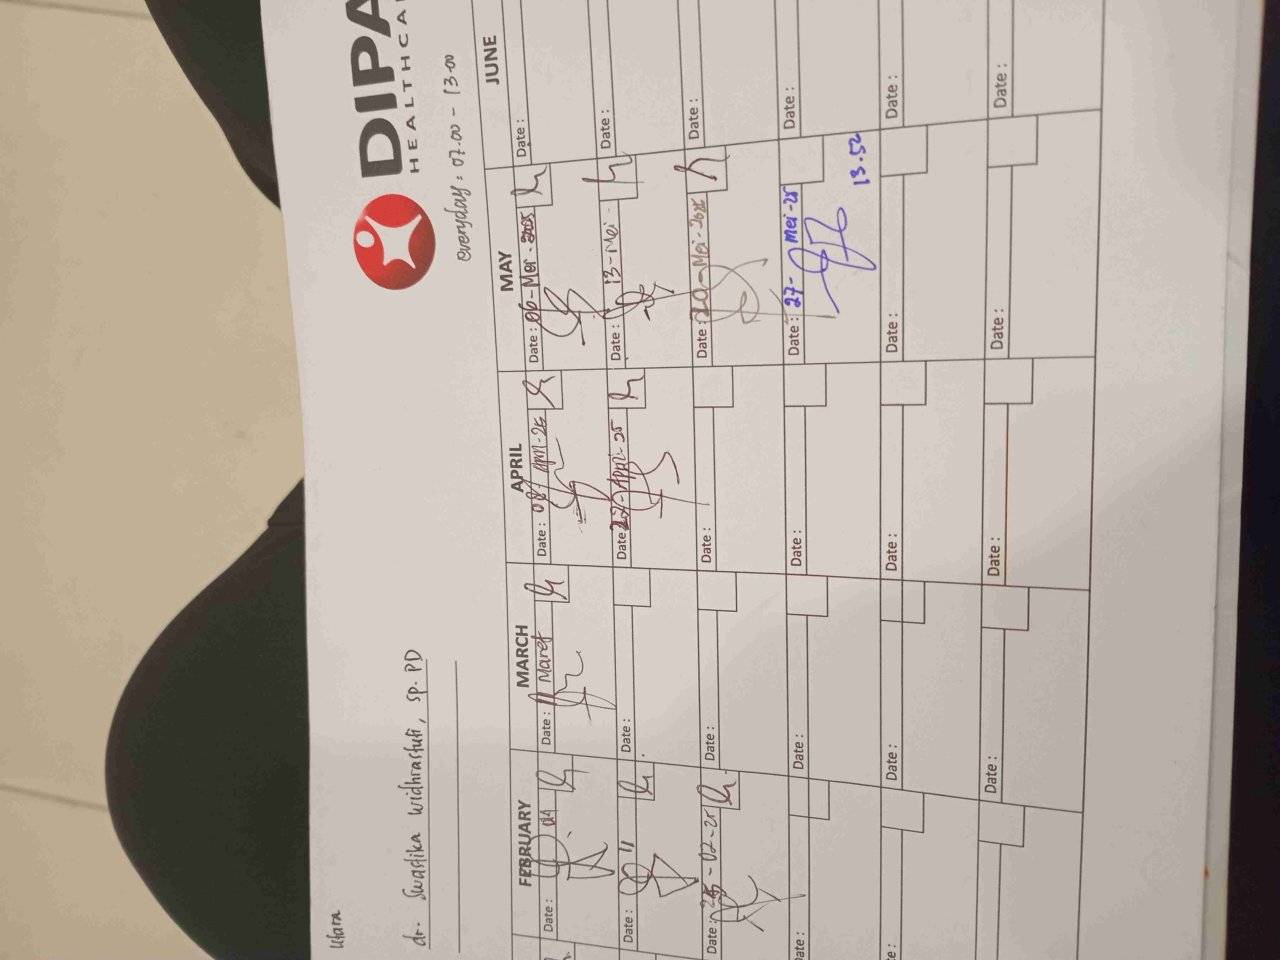 DIPA
HEALTHCA
everyday : 07.00 - 13.00
Utara
dr. Swastika Widhrastuti, Sp. PD
FEBRUARY MARCH APRIL MAY JUNE
Date: 04 Date: 11 Maret Date: 08 - April - 25 Date: 06 - Mei - 2025 Date:
Date: 11 Date: Date: 22 - April - 25 Date: 13 - Mei - Date:
Date: 25 - 02 - 25 Date: Date: Date: 20 - Mei - 2025 Date:
Date: Date: Date: Date: 27 - Mei - 25 Date:
13.52
Date: Date: Date: Date:
Date: Date: Date: Date: